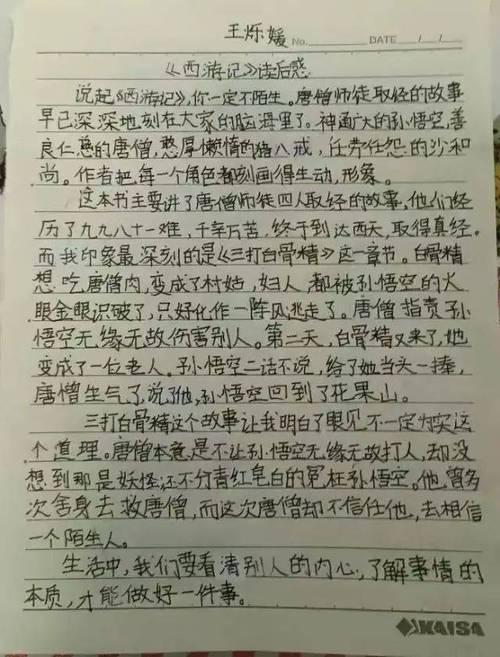 王烁媛
No.
DATE / /
《西游记》读后感
说起《西游记》,你一定不陌生。唐僧师徒取经的故事
早已深深地刻在大家的脑海里了。神通广大的孙悟空,善
良仁慈的唐僧,憨厚懒惰的猪八戒,任劳任怨的沙和
尚。作者把每一个角色都刻画得生动,形象。
这本书主要讲了唐僧师徒四人取经的故事,他们经
历了九九八十一难,千辛万苦,终于到达西天,取得真经。
而我印象最深刻的是《三打白骨精》这一章节。白骨精
想吃唐僧肉,变成了村姑,妇人,都被孙悟空的火
眼金眼识破了,只好化作一阵风逃走了。唐僧指责孙
悟空无缘无故伤害别人。第二天,白骨精又来了,她
变成了一位老人。孙悟空二话不说,给了她当头一捧,
唐僧生气了,说了他,孙悟空回到了花果山。
三打白骨精这个故事让我明白了眼见不一定为实这
个道理。唐僧本意是不让孙悟空无缘无故打人,却没
想到那是妖怪,还不分青红皂白的冤枉孙悟空。他,曾多
次舍身去救唐僧,而这次唐僧却不信任他,去相信
一个陌生人。
生活中,我们要看清别人的内心,了解事情的
本质,才能做好一件事。
KAISA